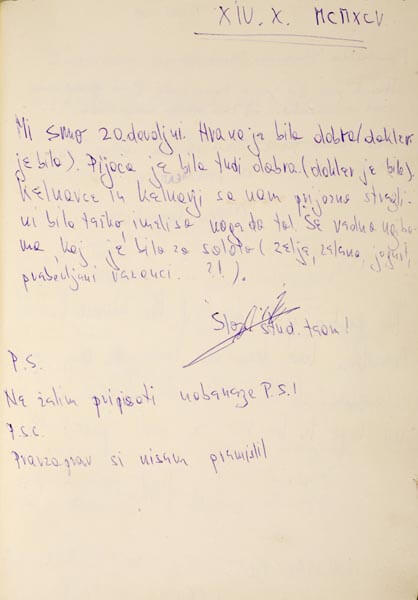 XIV. X. MCMXCV
Mi smo zadovoljni. Hrana je bila dobra (dokler
je bila). Pijača je bila tudi dobra (dokler je bila).
Kelnarce in kelnarji so nam prijazno stregli.
ni bilo težko imeli so noge do tal. Še vedno ne bo
ma kaj je bilo za solato ( zelje, zelena, jogurt,
prabavljani vazonci. ?! ).
stud. team!
P.S.
Ne želim pripisati nobenega P.S.!
P.S.C.
Pravzaprav si nisem premislil